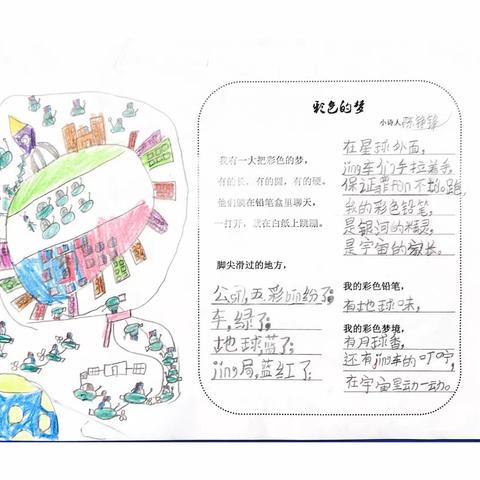 彩色的梦
小诗人陈铮锋
我有一大把彩色的梦,
有的长,有的圆,有的硬。
他们躺在铅笔盒里聊天,
一打开,就在白纸上跳蹦。
脚尖滑过的地方,
公司,五彩bin纷了;
车,绿了;
地球,蓝了;
jing局,蓝红了;
在星球外面,
jing车们手拉着手,
保证罪犯们不动。跑,
我的彩色铅笔,
是银河的精灵,
是宇宙的家长。
我的彩色铅笔,
有地球味,
我的彩色梦境,
有月球香,
还有jing车的叮咛,
在宇宙里动一动。